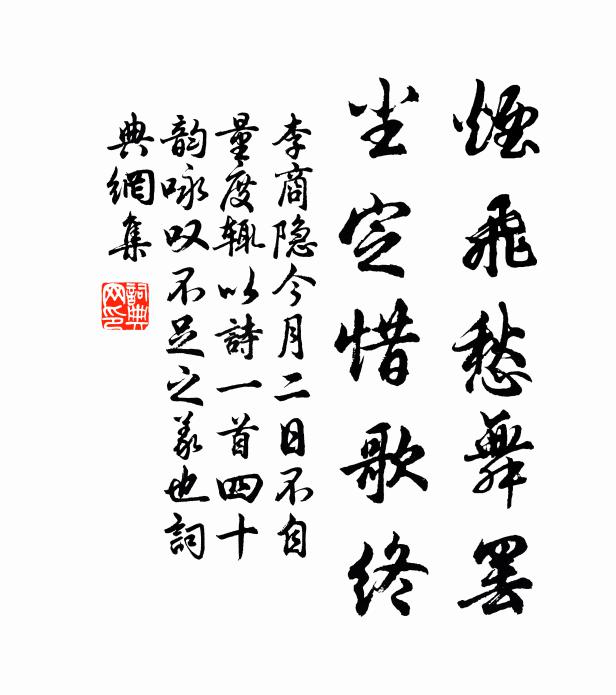 煙飛愁舞罷
尘定惜歌終
李商隐今月二日不自
量度辄以詩一首四十
韵咏叹不足之义也詞
典網集
詞典
网印